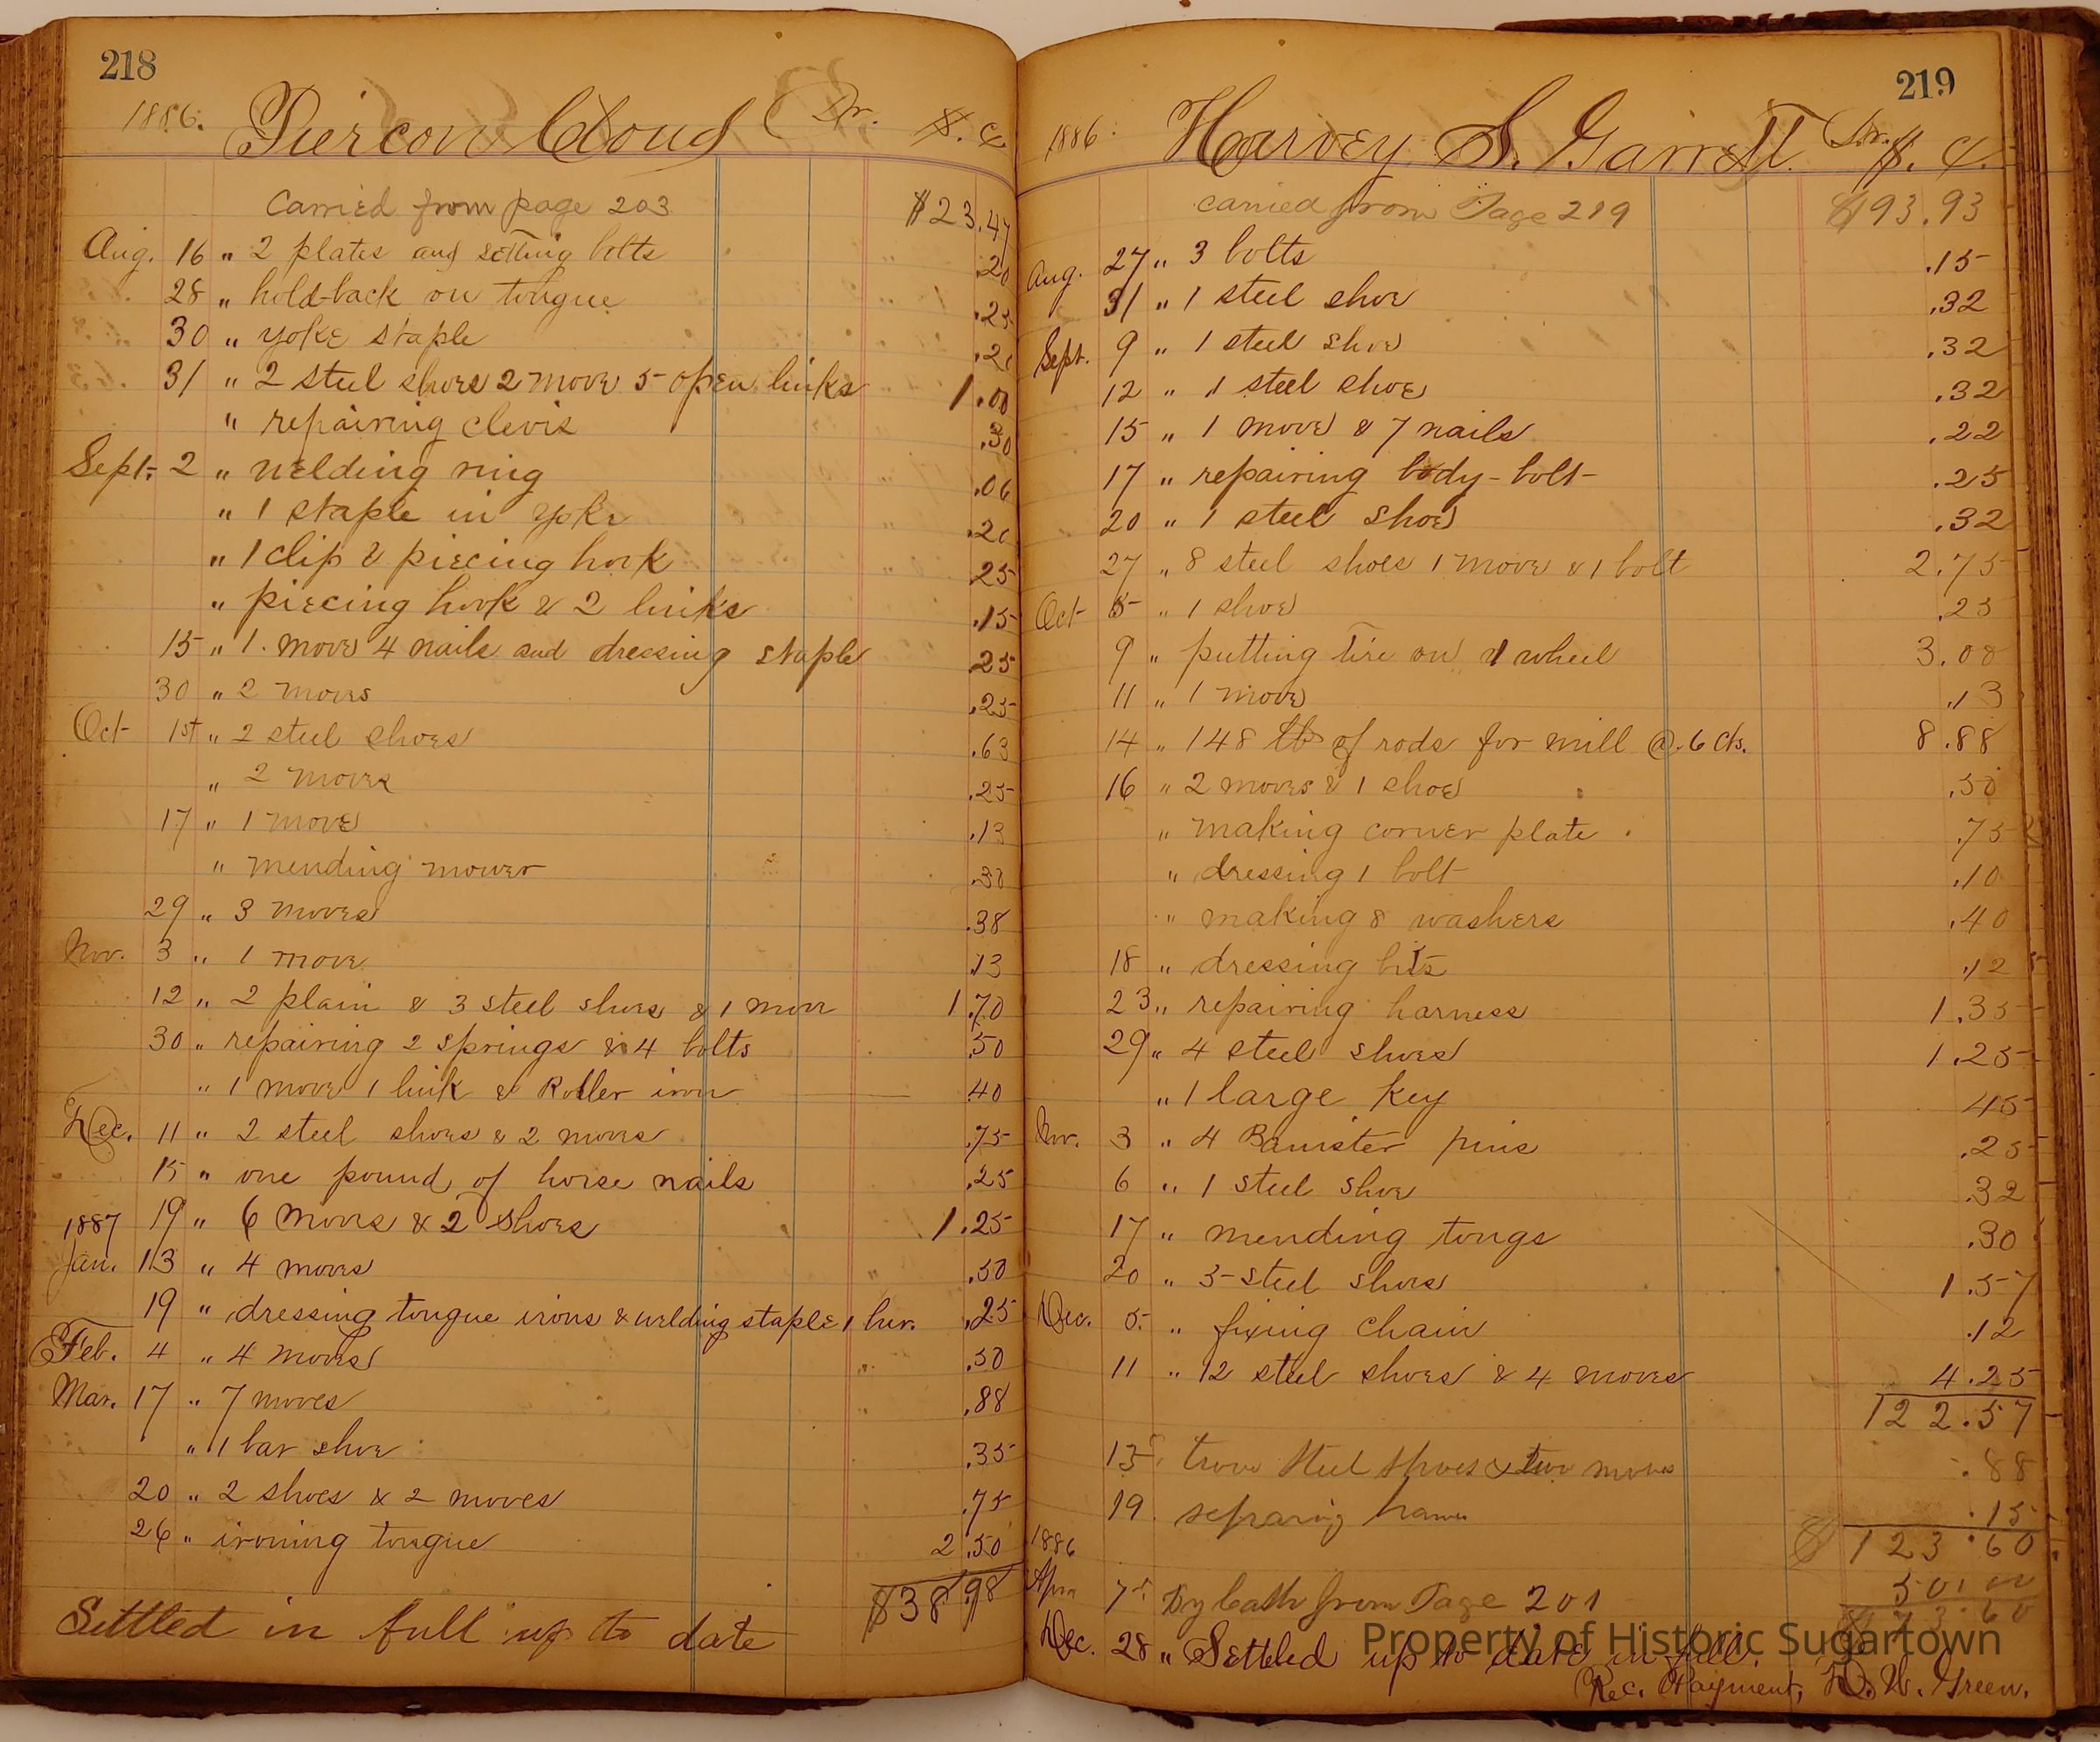 218
1886. Pierson Cloud Dr. $. c
Carried from page 203 $23.47
Aug. 16 " 2 plates and setting bolts .20
28 " hold-back on tongue .25
30 " yoke staple .20
31 " 2 steel shoes 2 move 5 open links 1.00
" repairing clevis .30
Sept. 2 " welding ring .06
" 1 staple in yoke .20
" 1 clip & piecing hook .25
" piecing hook & 2 links .15
15 " 1 move 4 nails and dressing staple .25
30 " 2 moves .25
Oct 1st " 2 steel shoes .63
" 2 moves .25
17 " 1 move .13
" mending mower .30
29 " 3 moves .38
Nov. 3 " 1 move .13
12 " 2 plain & 3 steel shoes & 1 move 1.70
30 " repairing 2 springs & 4 bolts .50
" 1 move 1 link & Roller iron .40
Dec. 11 " 2 steel shoes & 2 moves .75
15 " one pound of horse nails .25
19 " 6 moves & 2 shoes 1.25
1887
Jan. 13 " 4 moves .50
19 " dressing tongue irons & welding staple 1 hur. .25
Feb. 4 " 4 moves .50
Mar. 17 " 7 moves .88
" 1 bar shoe .35
20 " 2 shoes & 2 moves .75
26 " ironing tongue 2.50
$38.98
Settled in full up to date
219
1886. Harvey S. Garrett Dr. $. c.
carried from Page 219 $93.93
Aug. 27 " 3 bolts .15
31 " 1 steel shoe .32
Sept. 9 " 1 steel shoe .32
12 " 1 steel shoe .32
15 " 1 move & 7 nails .22
17 " repairing body-bolt .25
20 " 1 steel shoe .32
27 " 8 steel shoes 1 move & 1 bolt 2.75
Oct 5 " 1 shoe .25
9 " putting tire on 1 wheel 3.00
11 " 1 move .13
14 " 148 lb of rods for mill @ 6 cts. 8.88
16 " 2 moves & 1 shoe .50
" making corner plate .75
" dressing 1 bolt .10
" making 8 washers .40
18 " dressing bits .12
23 " repairing harness 1.35
29 " 4 steel shoes 1.25
" 1 large key .45
Nov. 3 " 4 Banister pins .25
6 " 1 steel shoe .32
17 " mending tongs .30
20 " 5 steel shoes 1.57
Dec. 5 " fixing chain .12
11 " 12 steel shoes & 4 moves 4.25
122.57
13 two Steel Shoes & two moves .88
19 .15
$123.60
1886
Apr 7 By Cash from Page 201 50.00
$73.60
Dec. 28 " Settled up to date in full.
Rec. Payment, D. W. Green.
Property of Historic Sugartown